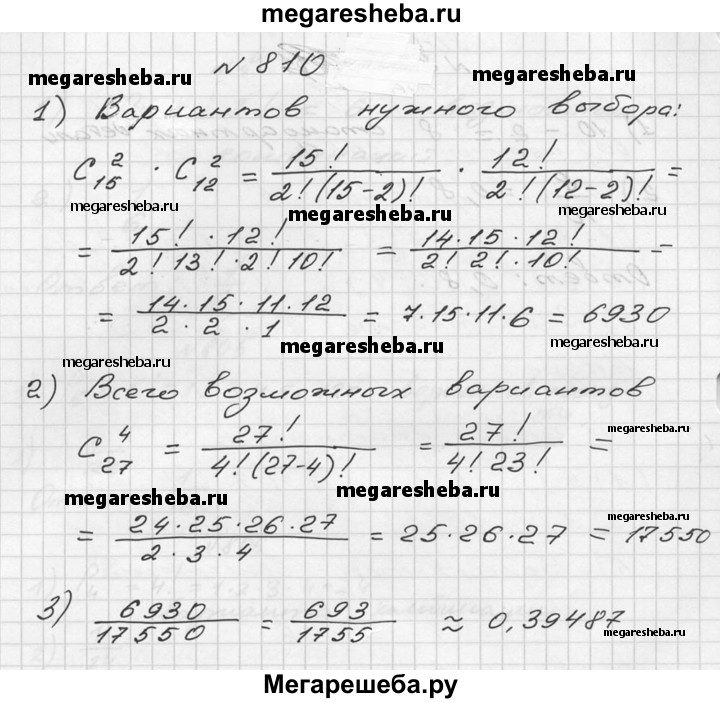 megaresheba.ru
№ 810
megaresheba.ru megaresheba.ru
1) Вариантов нужного выбора:
C₁₅² · C₁₂² = 15! / 2!(15-2)! · 12! / 2!(12-2)! =
megaresheba.ru megaresheba.ru megaresheba.ru
= 15! · 12! / 2! 13! · 2! 10! = 14·15·12! / 2! 2! · 10! =
= 14·15·11·12 / 2 · 2 · 1 = 7·15·11·6 = 6930
megaresheba.ru megaresheba.ru
2) Всего возможных вариантов
C₂₇⁴ = 27! / 4!(27-4)! = 27! / 4! 23! =
megaresheba.ru
megaresheba.ru megaresheba.ru
= 24·25·26·27 / 2 · 3 · 4 = 25·26·27 = 17550
megaresheba.ru
3) 6930 / 17550 = 693 / 1755 ≈ 0,39487
megaresheba.ru
Мегарешеба.ру